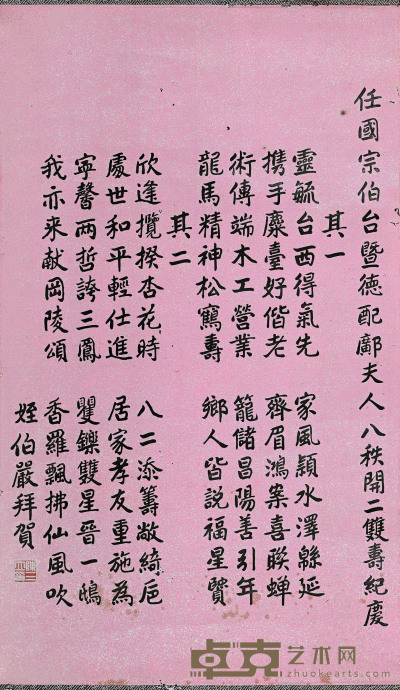 任國宗伯台暨德配鄺夫人八秩開二雙壽紀慶
其一
靈毓台西得氣先 家風潁水澤緜延
携手麋臺好偕老 齊眉鴻案喜聯蟬
術傳端木工營業 籠儲昌陽善引年
龍馬精神松鶴壽 鄉人皆説福星賢
其二
欣逢攬揆杏花時 八二添籌敞綺巵
處世和平輕仕進 居家孝友重施為
寧馨兩哲誇三鳳 矍鑠雙星晉一鴟
我亦来献岡陵頌 香羅飄拂仙風吹
姪伯嚴拜賀
卓克艺术网
zhuokearts.com